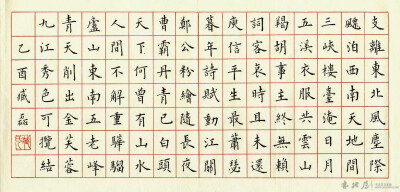 支離東北風塵際
飄泊西南天地間
三峽樓臺淹日月
五溪衣服共雲山
羯胡事主終無賴
詞客哀時且未還
庾信平生最蕭瑟
暮年詩賦動江關
鄭公粉繪隨長夜
曹霸丹青已白頭
天下何曾有山水
人間不解重驊騮
廬山東南五老峰
青天削出金芙蓉
九江秀色可攬結
乙酉臧磊